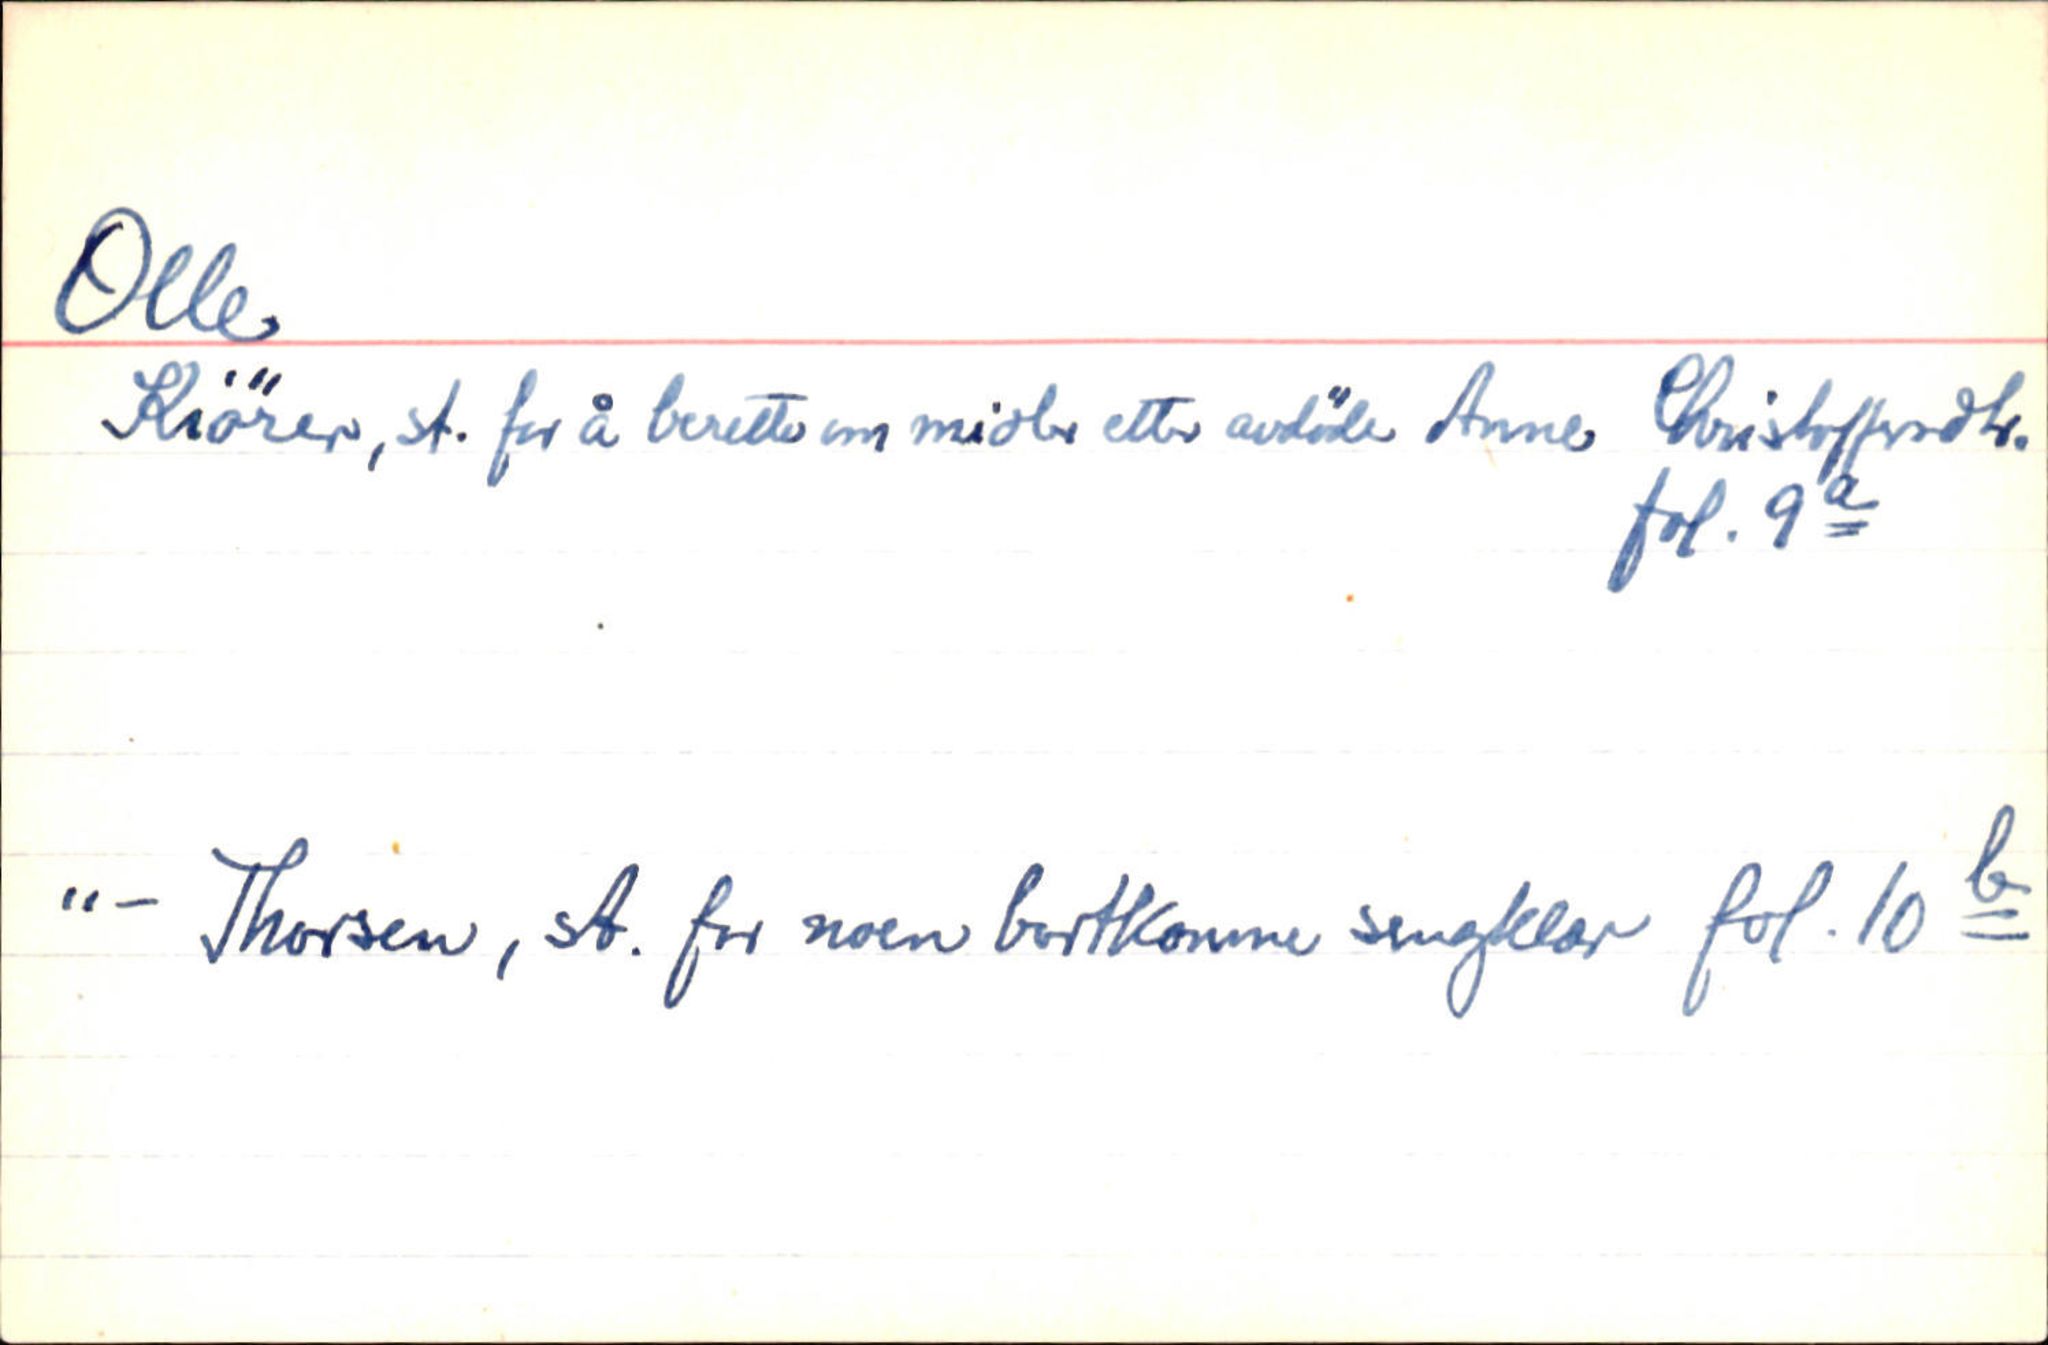 Olle
Kiörer, st. for å berette om midler etter avdöde Anne Christoffersdtr.
fol. 9 a
"- Thorsen, st. for noen bortkomne sengklær fol. 10 b